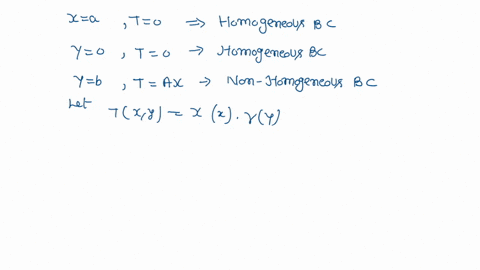 x=a , T=0 ⇒ Homogeneous BC
y=0 , T=0 ⇒ Homogeneous BC
y=b , T=Ax → Non-Homogeneous BC
Let
T(x,y) = X(x).Y(y)